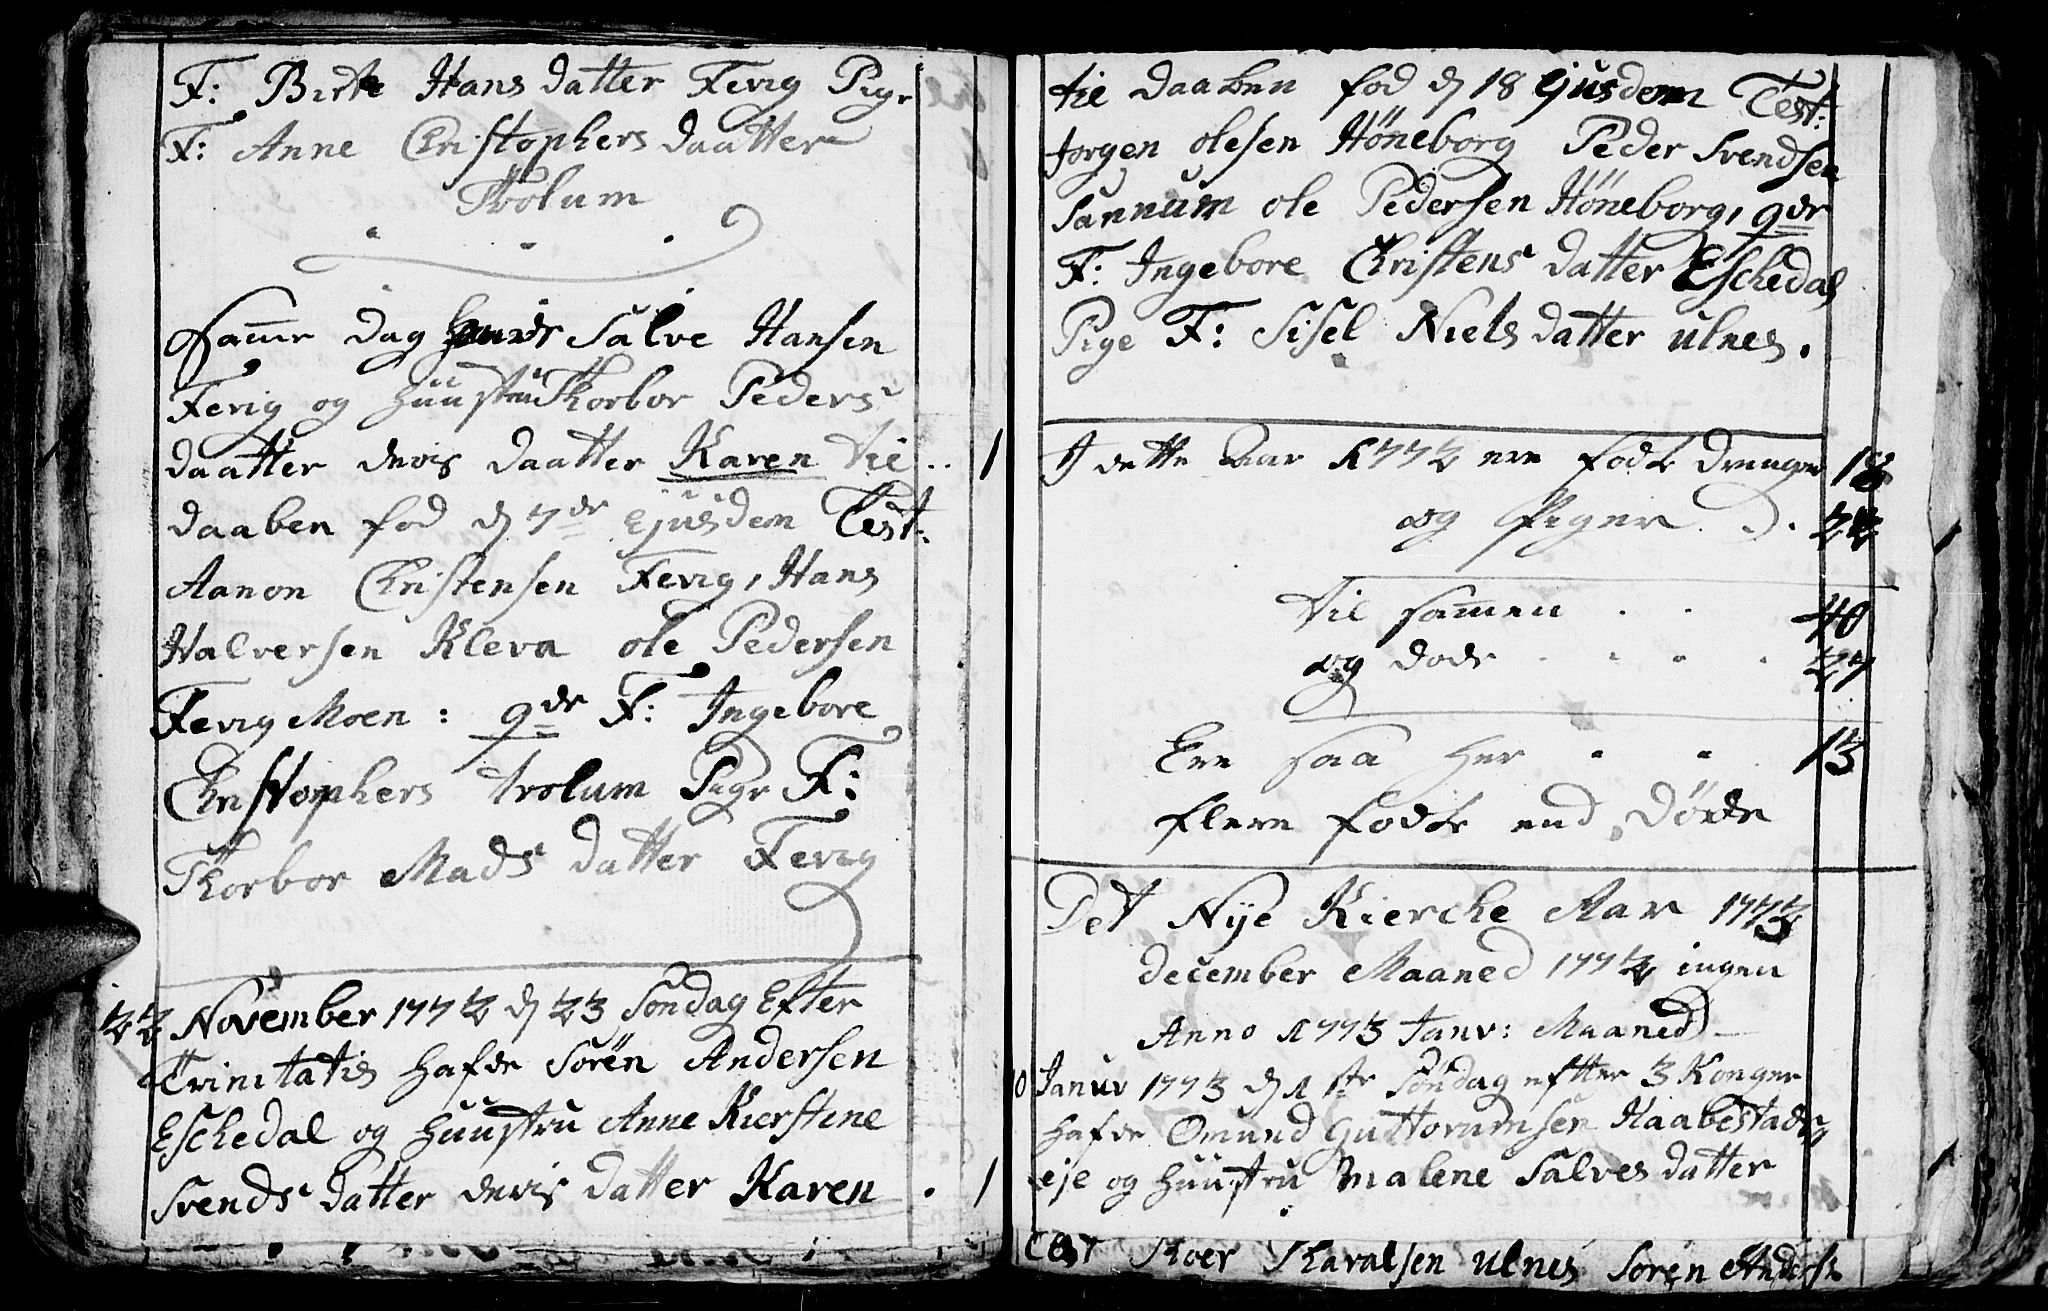 F: Birte Hans datter Fevig Pige
F: Anne Christophers daatter
Trolum
Samme dag hafde Salve Hansen
Fevig og Huustru Thorbor Peders
daatter deris daatter Karen til .. 1
daaben fød d 7de Ejusdem Test:
Aanon Christensen Fevig, Hans
Halversen Kleva ole Pedersen
Fevig Moen : qde F: Ingebore
Christophers trolum Pige F:
Thorbor Mads datter Fevig
22 November 1772 d 23 Søndag Efter
Trinitatis hafde Sørën Andersen
Eschedal og huustru Anne Kierstine
Svends datter deris datter Karen . 1
til daaben fød d 18 Ejusdem Test:
Jorgen olesen Höneborg Peder Svendsen
Sannum ole Pedersen Höneborg, qde
F: Ingebore Christens datter Eschedal
Pige F: Sisel Niels datter ulnes.
I dette Aar 1772 ere fødte drenge 18
og Piger . 22
til samen . . 40
og døde . . . . 27
Ere saa her . . 13
flere fødte end Döde
Det Nÿe Kierche Aar 1773
december Maaned 1772 ingen
Anno 1773 Janv: Maaned
10 Januv 1773 d 1ste Søndag efter 3 Konger
hafde Omund Guttorumsen Haabestads
eje og huustru Malene Salves datter
Test Roer Tharalsen ulnes Sorën Anders